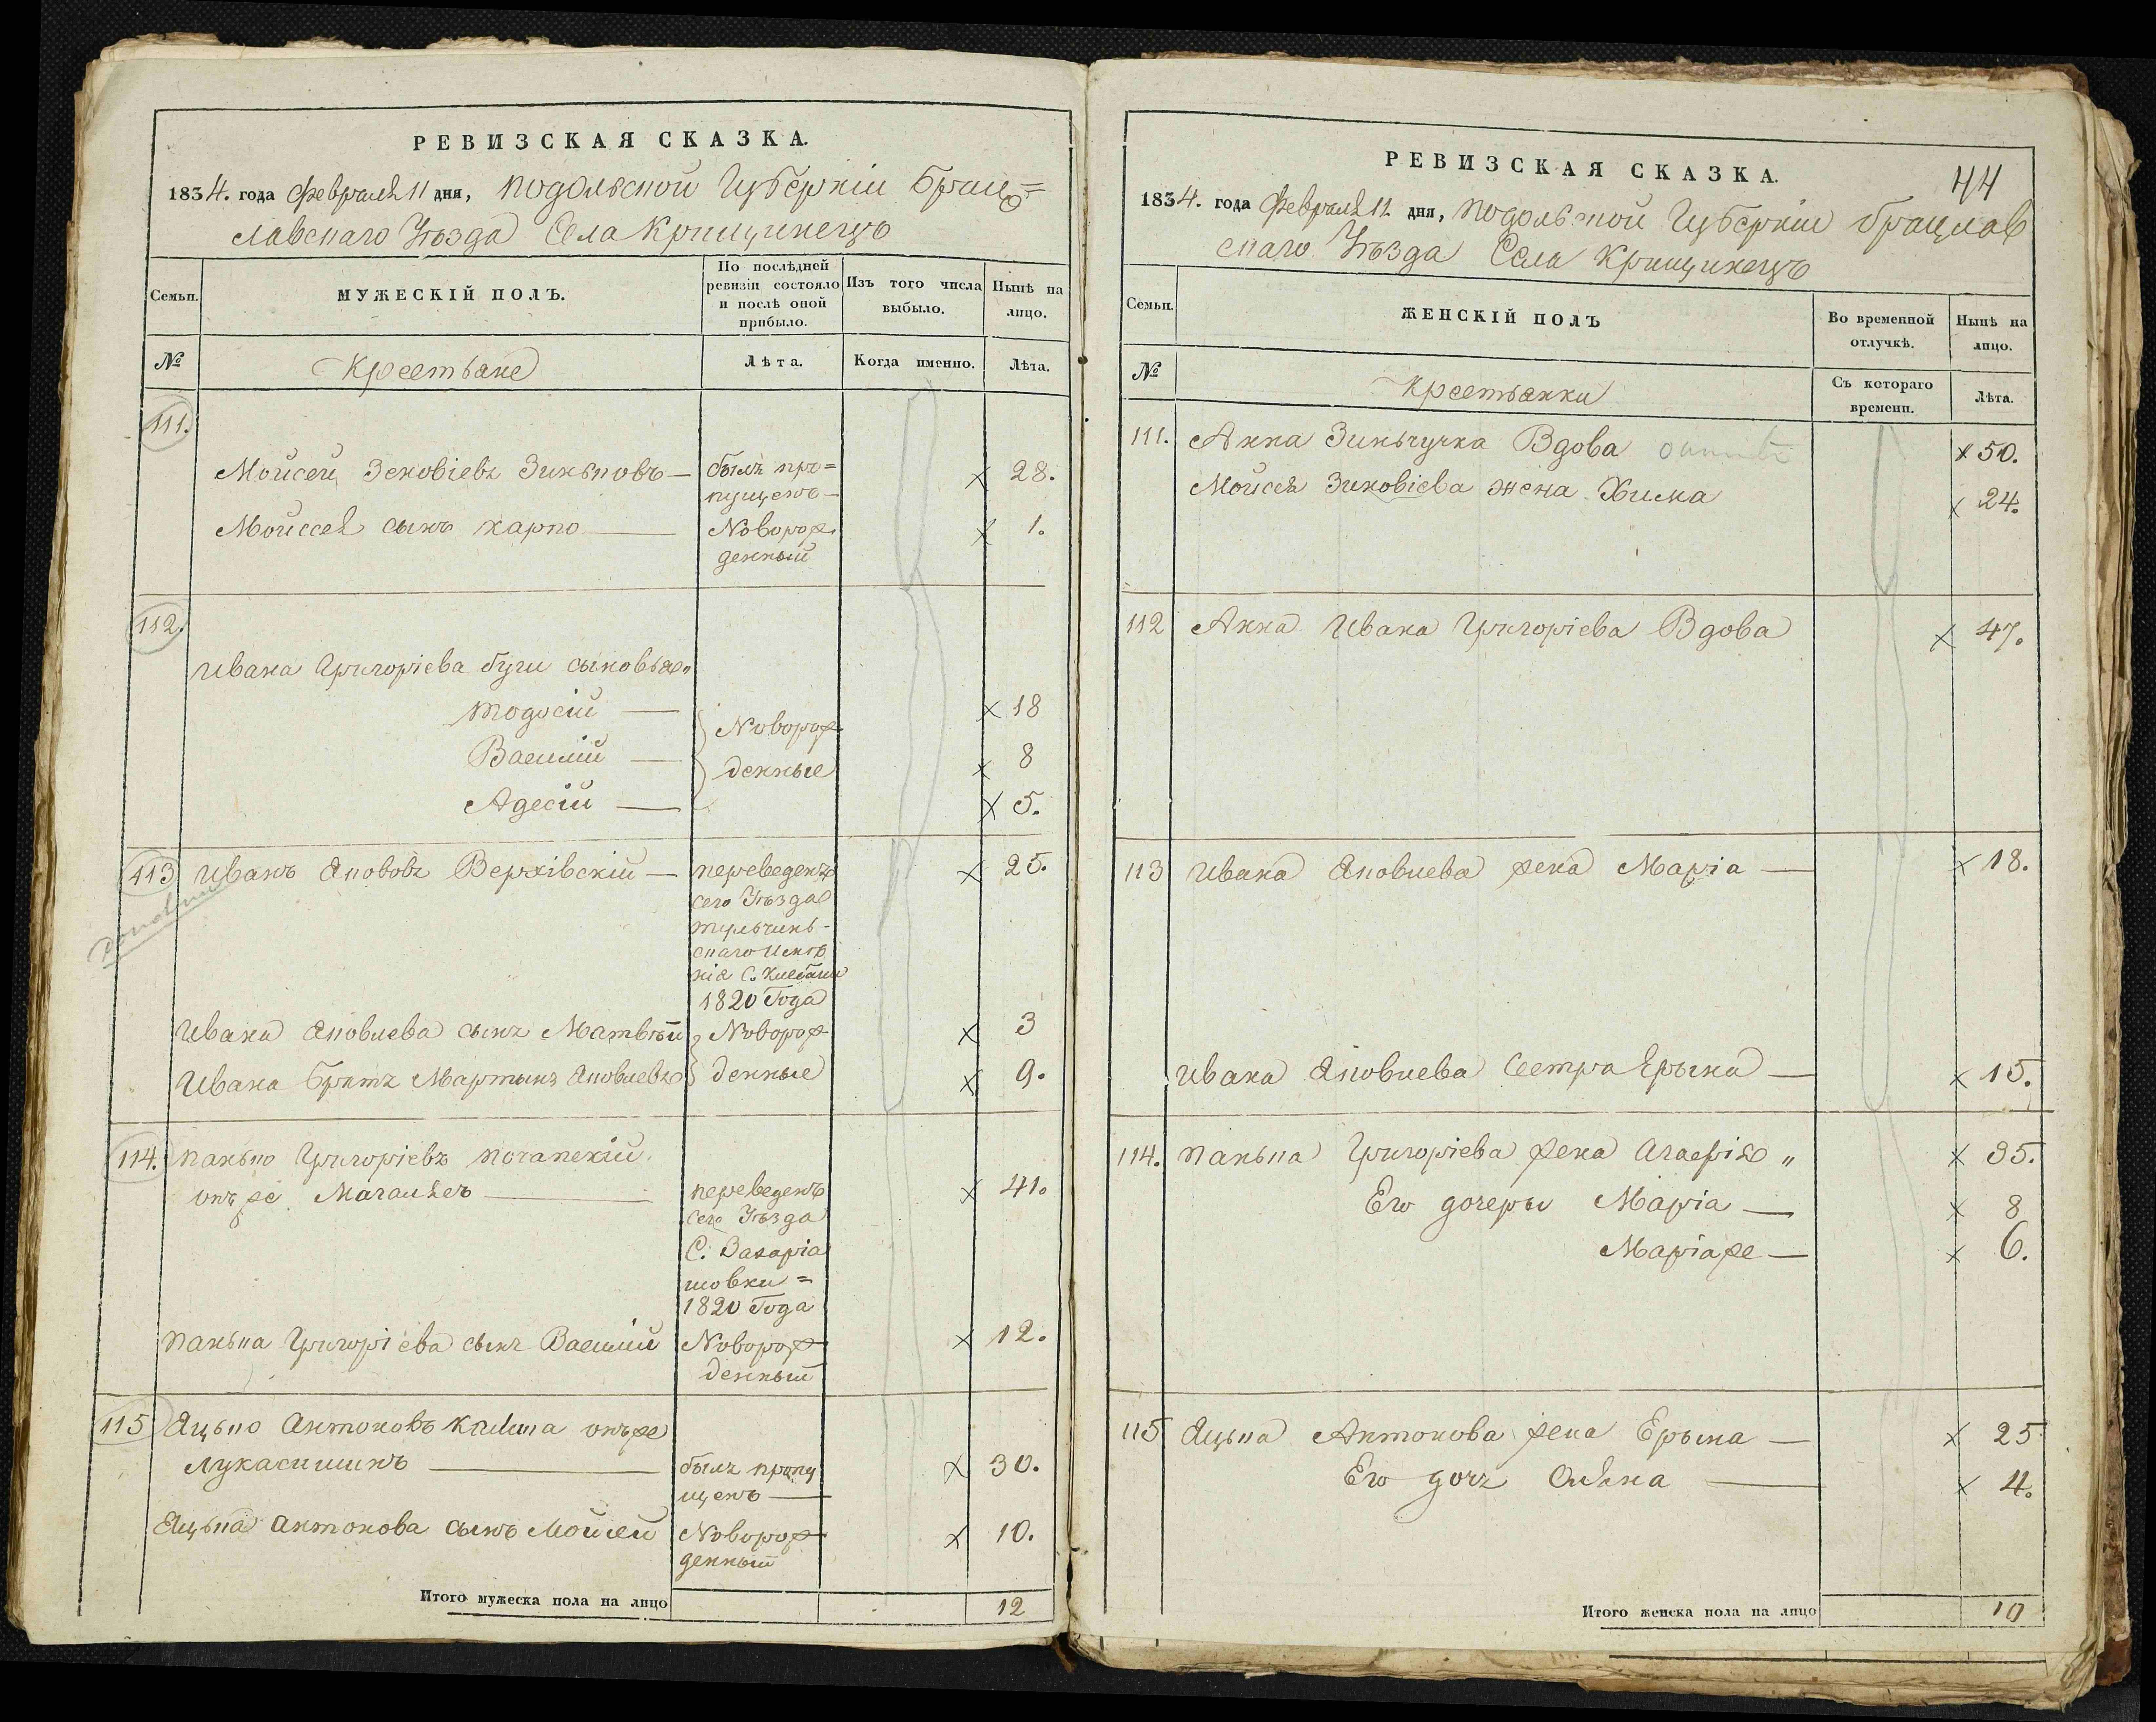 РЕВИЗСКАЯ СКАЗКА.
1834. года Февраля 11 дня, Подольской Губерніи Брац=
лавскаго Уѣзда Села Крищинецъ
Семьи.
МУЖЕСКІЙ ПОЛЪ.
По послѣдней ревизіи состояло и послѣ оной прибыло.
Изъ того числа выбыло.
Нынѣ на лицо.
№
Крестьяне
Лѣта.
Когда именно.
Лѣта.
111.
Мойсей Зеновіевъ Зиньковъ — былъ про= 28.
пущенъ —
Мойсея сынъ Карпо — Новорож 1.
денный
112.
Ивана Григоріева сыновья
Тодосій — 18
Новорож
Василій — 8
денные
Адесій — 5.
113 Иванъ Якововъ Верхівскій — переведенъ 25.
сего Уѣзда
тульчинь-
скаго имѣ
нія С. Клебани
1820 Года
Ивана Яковлева сынъ Матвѣй Новорож 3
Ивана Братъ Мартынъ Яковлевъ денные 9.
114. Панько Григоріевъ
онъ же переведенъ 41.
сего Уѣзда
С. Захарія
шовки =
1820 Года
Панька Григоріева сынъ Василій Новорож 12.
денный
115 Яцько Антоновъ онъ же
Лукасишинъ — былъ пропу 30.
щенъ —
Яцька Антонова сынъ Мойсей Новорож 10.
денный
Итого мужеска пола на лицо 12
РЕВИЗСКАЯ СКАЗКА.
44
1834. года Февраля 11 дня, Подольской Губерніи Брацлав
скаго Уѣзда Села Крищинецъ
Семьи.
ЖЕНСКІЙ ПОЛЪ
Во временной отлучкѣ.
Нынѣ на лицо.
№
Крестьянки
Съ котораго времени.
Лѣта.
111. Анна Зинькучка Вдова 50.
Мойсея Зиновіева жена Хима 24.
112 Анна Ивана Григоріева Вдова 47.
113 Ивана Яковлева жена Марія — 18.
Ивана Яковлева Сестра Ерына — 15.
114. Панька Григоріева жена Агафія „ 35.
Его дочеры Марія — 8
Марія же — 6.
115 Яцька Антонова жена Ерына — 25
Его дочъ Оляна — 4.
Итого женска пола на лицо 10